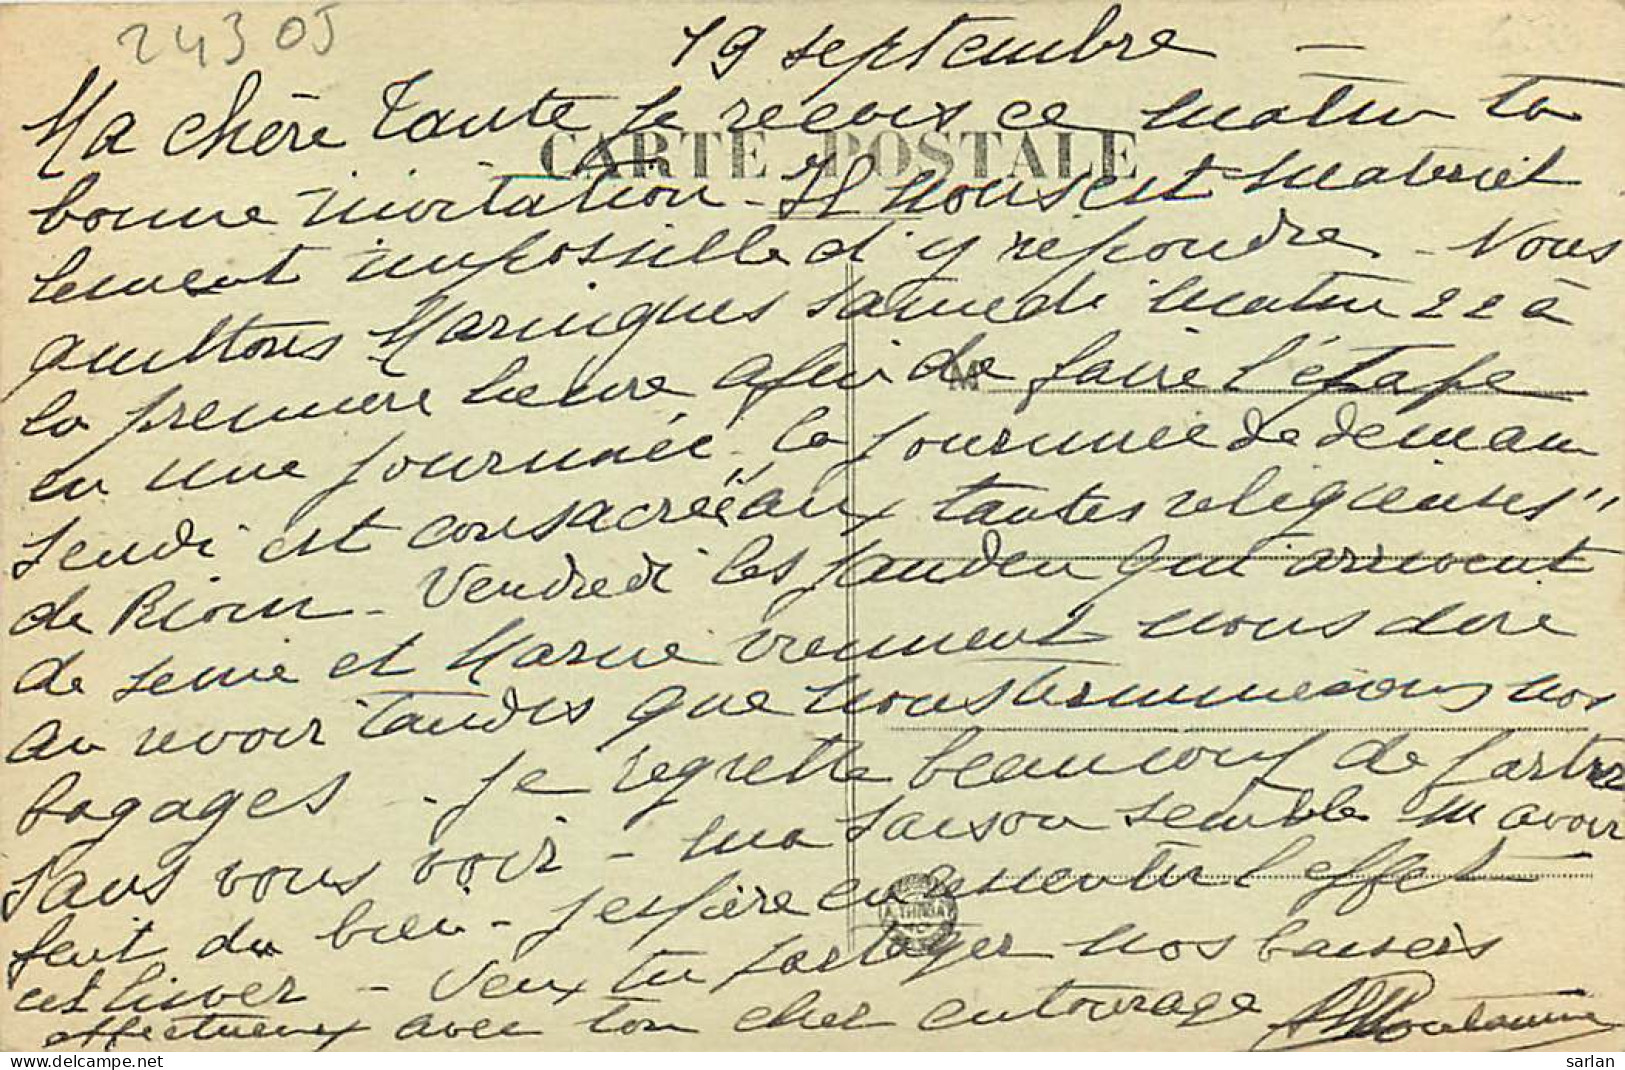 24305
19 septembre –
Ma chère Tante je reçois ce matin ta
CARTE POSTALE
bonne invitation – Il nous est matériel
lement impossible d'y repondre – Nous
quittons Maringues samedi matin 22 à
la première heure afin de faire l'étape
M
en une journée. la journée de demain
jeudi est consacrée aux "tantes religieuses"
de Riom – Vendredi les qui arrivent
de Seine et Marne viennent nous dire
au revoir tandis que nous terminerons nos
bagages – je regrette beaucoup de partir
sans vous voir – ma saison semble m'avoir
fait du bien – j'espère en ressentir l'effet
cet hiver – Veux tu partager nos baisers
affectueux avec ton cher entourage
sarlan